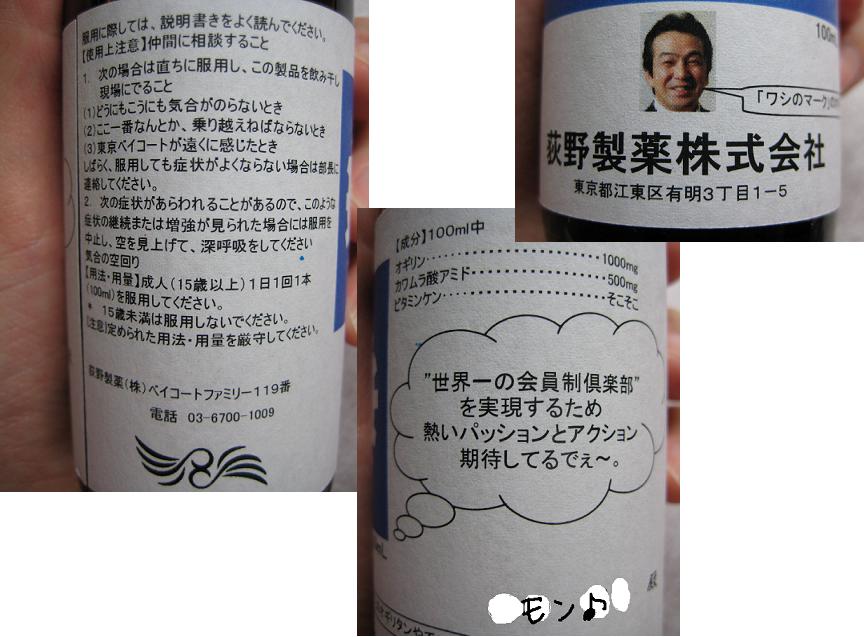 服用に際しては、説明書きをよく読んでください。
【使用上注意】仲間に相談すること
1. 次の場合は直ちに服用し、この製品を飲み干し
現場にでること
(1)どうにもこうにも気合がのらないとき
(2)ここ一番なんとか、乗り越えねばならないとき
(3)東京ベイコートが遠くに感じたとき
しばらく、服用しても症状がよくならない場合は部長に
連絡してください。
2. 次の症状があらわれることがあるので、このような
症状の継続または増強が見られた場合には服用を
中止し、空を見上げて、深呼吸をしてください
気合の空回り
【用法・用量】成人(15歳以上)1日1回1本
(100ml)を服用してください。
* 15歳未満は服用しないでください。
【注意】定められた用法・用量を厳守してください。
荻野製薬(株)ベイコートファミリー119番
電話 03-6700-1009
100m
「ワシのマーク」の
荻野製薬株式会社
東京都江東区有明3丁目1-5
【成分】100ml中
オギリン・・・・・・・・・・・・・・・・・・・・1000mg
カワムラ酸アミド・・・・・・・・・・・・・・・500mg
ビタミンケン・・・・・・・・・・・・・・・・・そこそこ
"世界一の会員制倶楽部"
を実現するため
熱いパッションとアクション
期待してるでぇ~。
mL
モン♪